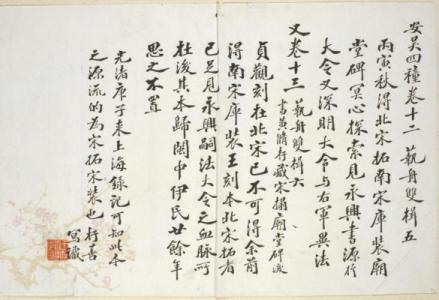 安吳四種卷十二 藝舟雙楫五
丙寅秋得北宋拓南宋庫裝廟
堂碑冥心探索見永興書源於
大令又深明大令与右軍異法
又卷十三 藝舟雙楫六
書黃脩存藏宋搨廟堂碑後
貞觀刻在北宋已不可得余前
得南宋庫裝王刻本北宋拓者
已足見永興嗣法大令之血脈所
在後其本歸閩中伊氏廿餘年
思之不置
光緒庚子來上海錄記可知此本
之源流的為宋拓宋裝也